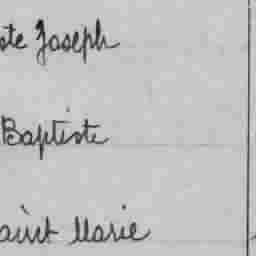 ste Joseph
Baptiste
aint Marie